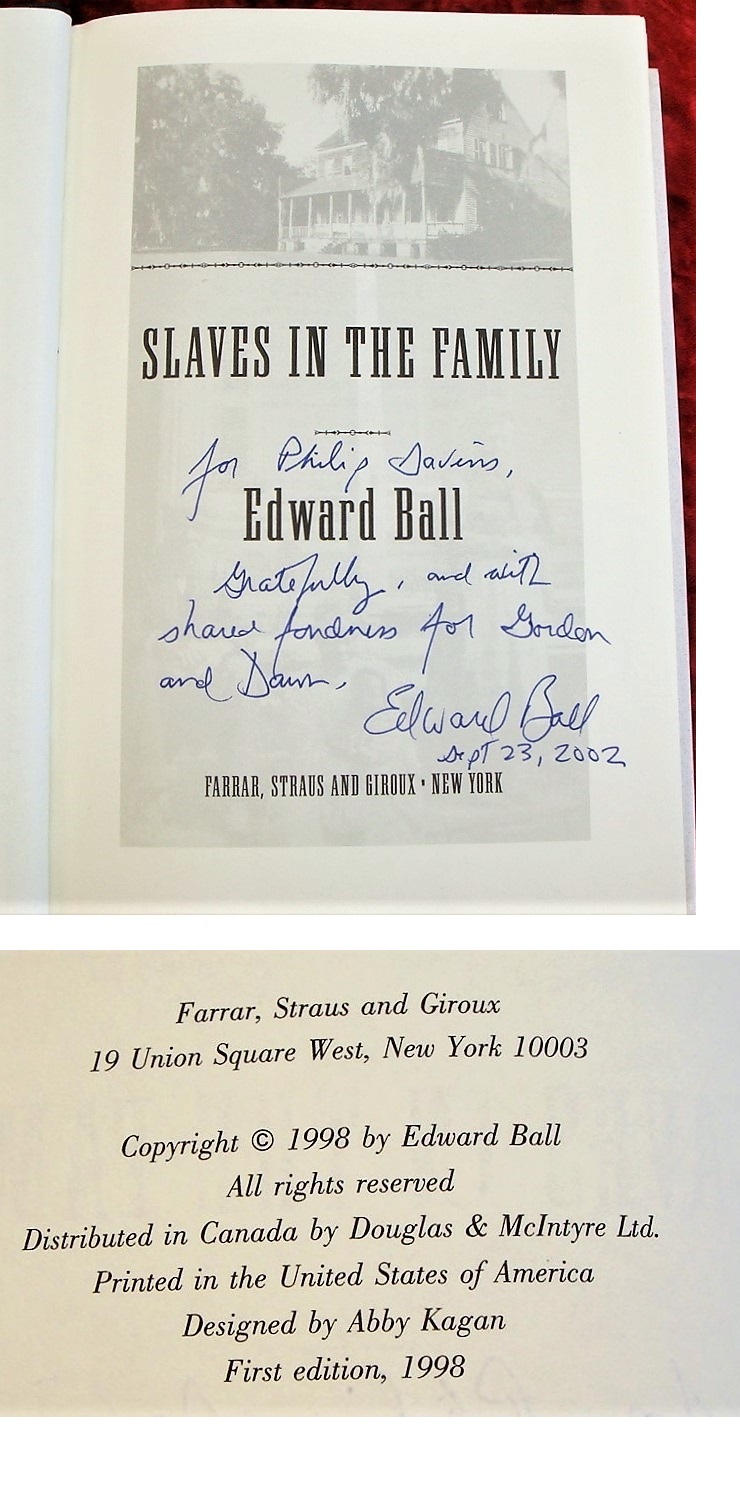 SLAVES IN THE FAMILY
for Philip
Edward Ball
Gratefully, and with
shared fondness for Gordon
and Dawn,
Edward Ball
Sept 23, 2002
FARRAR, STRAUS AND GIROUX • NEW YORK
Farrar, Straus and Giroux
19 Union Square West, New York 10003
Copyright © 1998 by Edward Ball
All rights reserved
Distributed in Canada by Douglas & McIntyre Ltd.
Printed in the United States of America
Designed by Abby Kagan
First edition, 1998